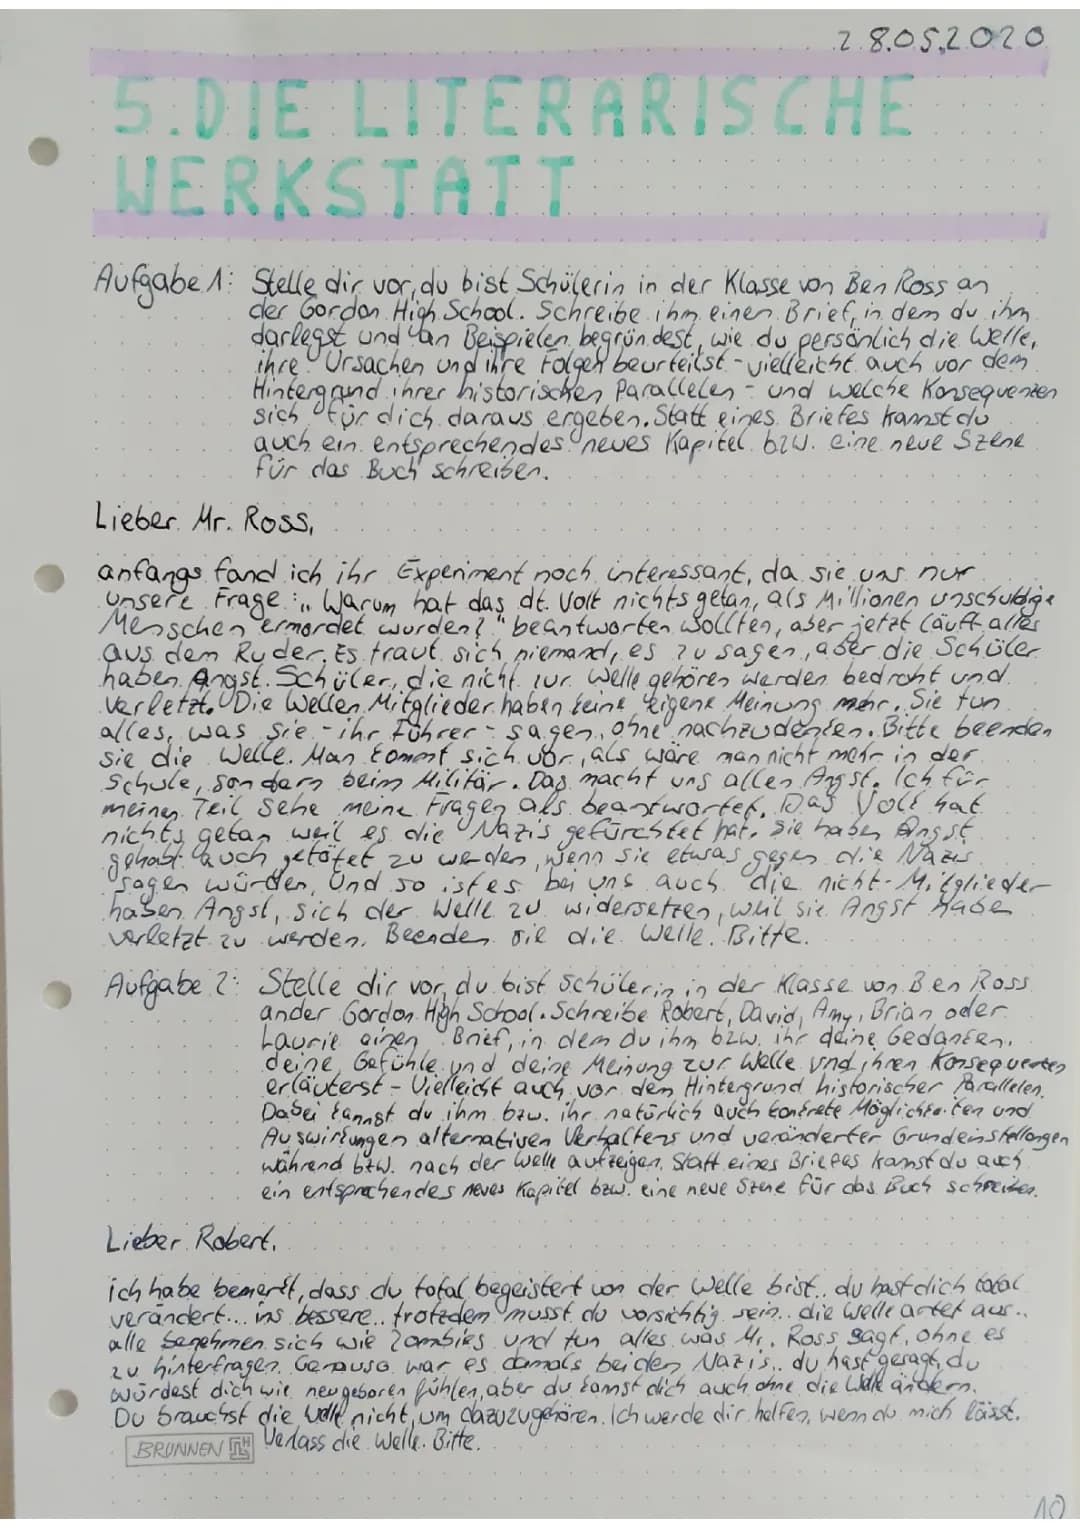 28.05.2020
5. DIE LITERARISCHE
WERKSTATT
Aufgabe 1: Stelle dir vor, du bist Schülerin in der Klasse von Ben Ross an
der Gordon High School. Schreibe ihm einen Brief, in dem du ihm
darlegst und an Beispielen begründest, wie du persönlich die Welle,
ihre Ursachen und ihre Folgen beurteilst - vielleicht auch vor dem
Hintergrund ihrer historischen Parallelen - und welche Konsequenzen
sich für dich daraus ergeben. Statt eines Briefes kannst du
auch ein entsprechendes neues Kapitel bzw. eine neue Szene
für das Buch schreiben.
Lieber Mr. Ross,
anfangs fand ich ihr Experiment noch interessant, da sie uns nur
unsere Frage: "Warum hat das dt. Volk nichts getan, als Millionen unschuldige
Menschen ermordet wurden?" beantworten wollten, aber jetzt läuft alles
aus dem Ruder. Es traut sich niemand, es zu sagen, aber die Schüler
haben Angst. Schüler, die nicht zur Welle gehören werden bedroht und
verletzt. Die Wellen Mitglieder haben keine eigene Meinung mehr. Sie tun
alles, was sie - ihr Führer - sagen, ohne nachzudenken. Bitte beenden
sie die Welle. Man kommt sich vor, als wäre man nicht mehr in der
Schule, sondern beim Militär. Das macht uns allen Angst. Ich für
meinen Teil sehe meine Fragen als beantwortet. Das Volk hat
nichts getan weil es die Nazis gefürchtet hat. Sie haben Angst
gehabt auch getötet zu werden, wenn sie etwas gegen die Nazis
sagen würden. Und so ist es bei uns auch die nicht-Mitglieder
haben Angst, sich der Welle zu widersetzen, weil sie Angst haben
verletzt zu werden. Beenden sie die Welle. Bitte.
Aufgabe 2: Stelle dir vor, du bist Schülerin in der Klasse von Ben Ross
an der Gordon High School. Schreibe Robert, David, Amy, Brian oder
Laurie einen Brief, in dem du ihm bzw. ihr deine Gedanken,
deine Gefühle und deine Meinung zur Welle und ihren Konsequenzen
erläuterst - Vielleicht auch vor dem Hintergrund historischer Parallelen.
Dabei kannst du ihm bzw. ihr natürlich auch konkrete Möglichkeiten und
Auswirkungen alternativen Verhaltens und veränderter Grundeinstellungen
während bzw. nach der Welle aufzeigen. Statt eines Briefes kannst du auch
ein entsprechendes neues Kapitel bzw. eine neue Szene für das Buch schreiben.
Lieber Robert,
ich habe bemerkt, dass du total begeistert von der Welle bist.. du hast dich total
verändert... ins bessere.. trotzdem musst du vorsichtig sein.. die Welle artet aus..
alle benehmen sich wie Zombies und tun alles was Mr. Ross sagt, ohne es
zu hinterfragen. Genauso war es damals bei den Nazis.. du hast gesagt, du
würdest dich wie neugeboren fühlen, aber du kannst dich auch ohne die Welle ändern.
Du brauchst die Welle nicht, um dazuzugehören. Ich werde dir helfen, wenn du mich lässt.
Verlass die Welle. Bitte.
BRUNNEN
10